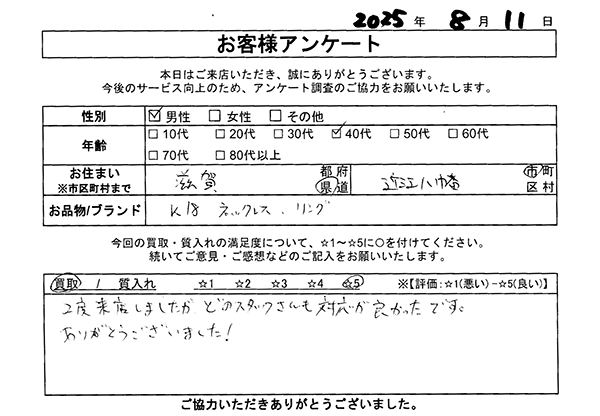 2025 年 8 月 11 日
お客様アンケート
本日はご来店いただき、誠にありがとうございます。
今後のサービス向上のため、アンケート調査のご協力をお願いいたします。
性別 ☑ 男性 □ 女性 □ その他
年齢 □ 10代 □ 20代 □ 30代 ☑ 40代 □ 50代 □ 60代
□ 70代 □ 80代以上
お住まい 滋賀 都府 近江八幡 市町
※市区町村まで 県道 区村
お品物/ブランド K18 ネックレス、リング
今回の買取・質入れの満足度について、☆1～☆5に○を付けてください。
続いてご意見・ご感想などのご記入をお願いいたします。
買取 / 質入れ ☆1 ☆2 ☆3 ☆4 ☆5 ※【評価:☆1(悪い)-☆5(良い)】
2度来店しましたが どのスタッフさんも 対応が良かったです。
ありがとうございました!
ご協力いただきありがとうございました。